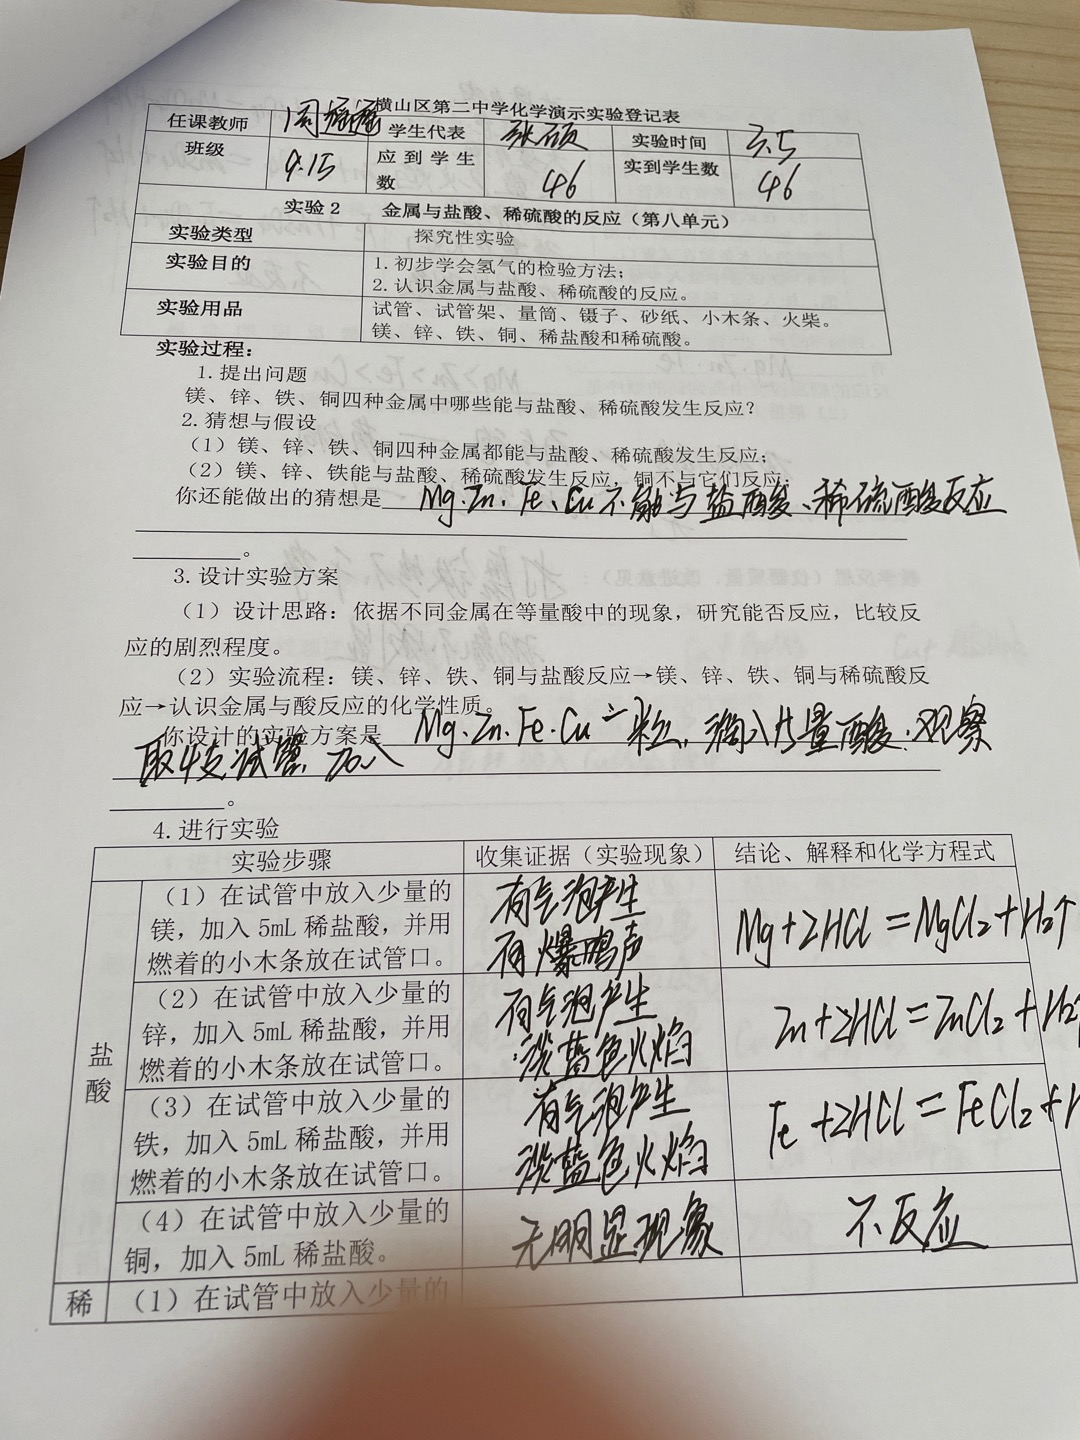 横山区第二中学化学演示实验登记表
任课教师 周 学生代表 张硕 实验时间 3.5
班级 9.15 应到学生数 46 实到学生数 46
实验2 金属与盐酸、稀硫酸的反应（第八单元）
实验类型 探究性实验
实验目的 1.初步学会氢气的检验方法；
2.认识金属与盐酸、稀硫酸的反应。
实验用品 试管、试管架、量筒、镊子、砂纸、小木条、火柴。
镁、锌、铁、铜、稀盐酸和稀硫酸。
实验过程：
1.提出问题
镁、锌、铁、铜四种金属中哪些能与盐酸、稀硫酸发生反应？
2.猜想与假设
（1）镁、锌、铁、铜四种金属都能与盐酸、稀硫酸发生反应；
（2）镁、锌、铁能与盐酸、稀硫酸发生反应，铜不与它们反应；
你还能做出的猜想是 Mg.Zn.Fe.Cu不能与盐酸、稀硫酸反应
。
3.设计实验方案
（1）设计思路：依据不同金属在等量酸中的现象，研究能否反应，比较反
应的剧烈程度。
（2）实验流程：镁、锌、铁、铜与盐酸反应→镁、锌、铁、铜与稀硫酸反
应→认识金属与酸反应的化学性质。
你设计的实验方案是 Mg.Zn.Fe.Cu 二粒，滴入少量酸.观察
取4支试管，加入
。
4.进行实验
实验步骤 收集证据（实验现象） 结论、解释和化学方程式
盐酸
（1）在试管中放入少量的
镁，加入5mL稀盐酸，并用
燃着的小木条放在试管口。
有气泡产生
有爆鸣声
Mg+2HCl=MgCl₂+H₂↑
（2）在试管中放入少量的
锌，加入5mL稀盐酸，并用
燃着的小木条放在试管口。
有气泡产生
淡蓝色火焰
Zn+2HCl=ZnCl₂+H₂
（3）在试管中放入少量的
铁，加入5mL稀盐酸，并用
燃着的小木条放在试管口。
有气泡产生
淡蓝色火焰
Fe+2HCl=FeCl₂+H
（4）在试管中放入少量的
铜，加入5mL稀盐酸。
无明显现象
不反应
稀 （1）在试管中放入少量的